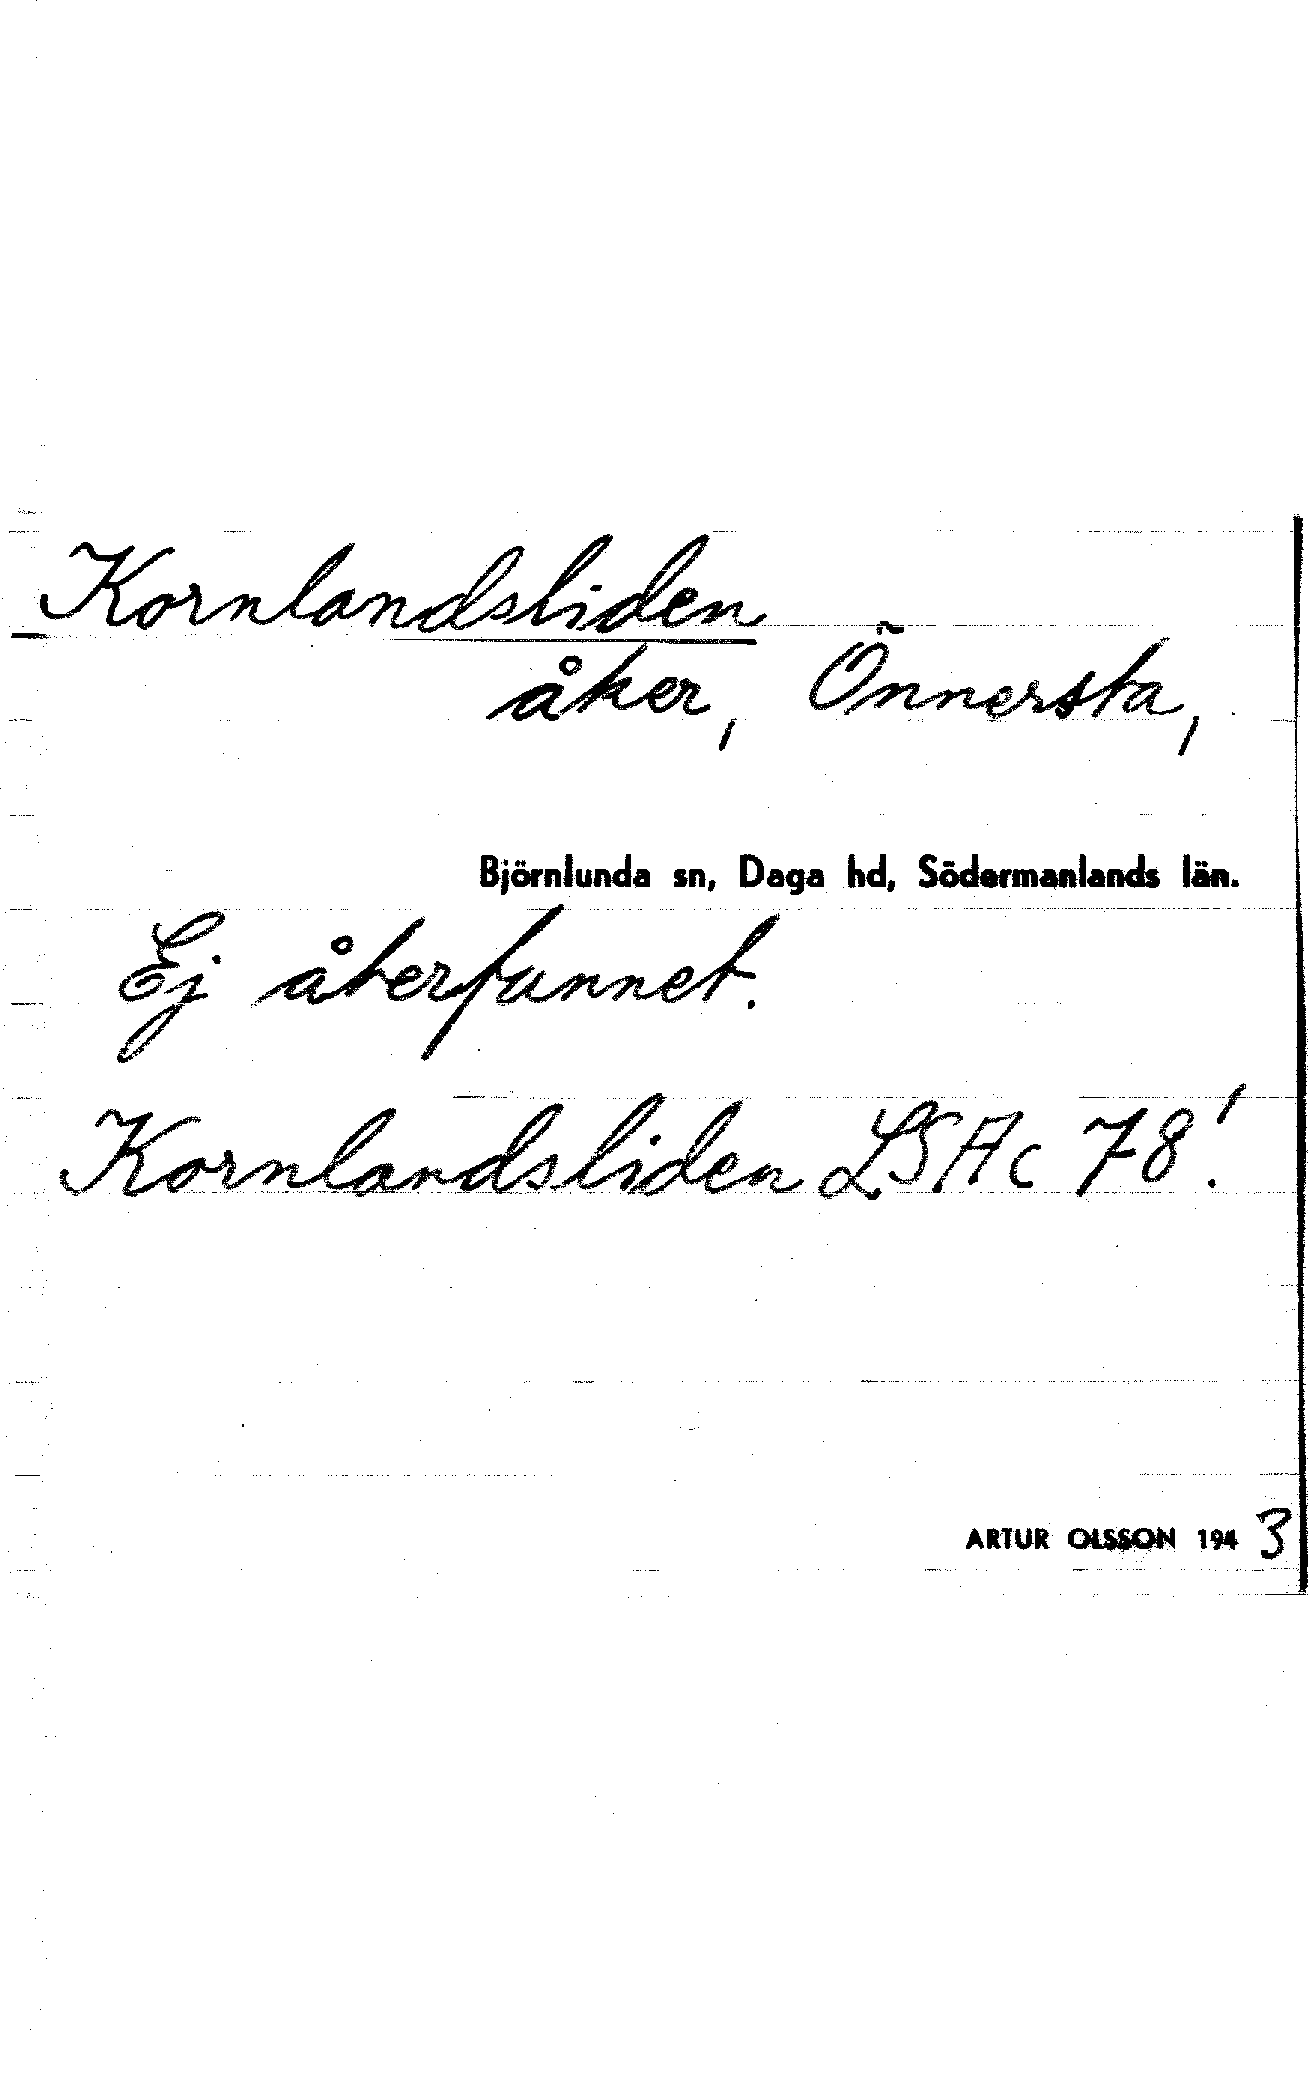 Kornlandsliden
åker, Önnersta,
Björnlunda sn, Daga hd, Södermanlands län.
Ej återfunnet.
Kornlandsliden LSAc 78!
ARTUR OLSSON 1943